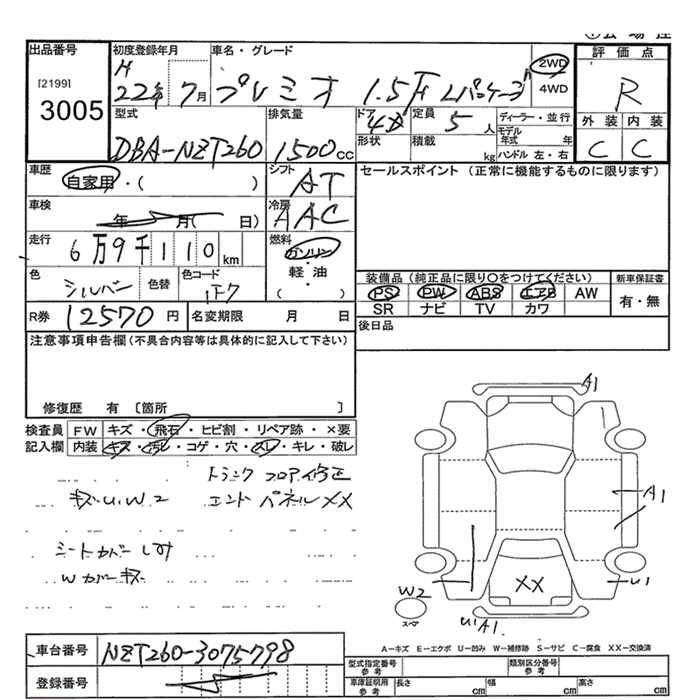 出品番号
[2199]
3005
初度登録年月
H
22年 7月
車名・グレード
プレミオ 1.5F Lパッケージ
2WD
4WD
評価点
R
外装 内装
C C
型式
DBA-NZT260
排気量
1500cc
ドア
4D
形状
定員
5人
積載
kg
ディーラー・並行
モデル年式 年
ハンドル 左・右
車歴
自家用・( )
シフト
AT
セールスポイント (正常に機能するものに限ります)
車検
年 月( 日)
冷房
AAC
走行
6万9千110km
燃料
ガソリン
軽油
・( )
色
シルバー
色替
色コード
1F7
装備品 (純正品に限り〇をつけてください)
新車保証書
PS PW ABS エアB AW
SR ナビ TV カワ
有・無
R券 12570円
名変期限 月 日
後日品
注意事項申告欄(不具合内容等は具体的に記入して下さい)
修復歴 有 〔箇所 〕
検査員記入欄
FW キズ・飛石・ヒビ割・リペア跡・×要
内装 キズ・汚レ・コゲ・穴・スレ・キレ・破レ
トランクフロア修正
キズU.W2 エンドパネルXX
シートカバー
Wカバーキズ
A1
A1
U1
W2
スペア
XX
U1A1
車台番号 NZT260-3075798
登録番号
A-キズ E-エクボ U-凹み W-補修跡 S-サビ C-腐食 XX-交換済
型式指定番号 参考
類別区分番号 参考
車庫証明用 参考
長さ cm
幅 cm
高さ cm